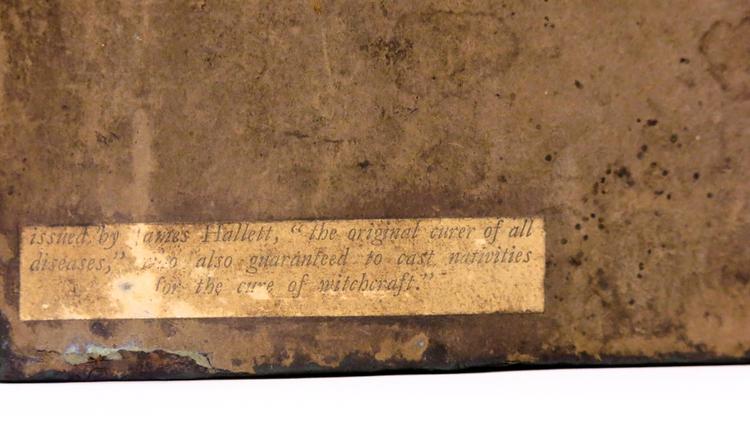 issued by James Hallett, “the original curer of all
diseases,” who also guaranteed to cast nativities
for the cure of witchcraft.”